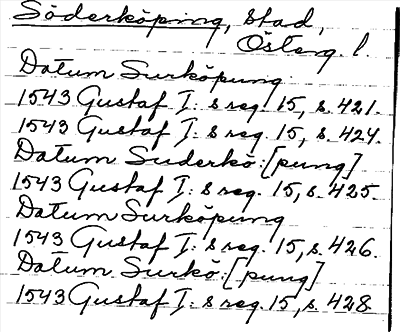 Söderköping, stad,
Österg. l.
Datum Surköpung
1543 Gustaf I: s reg. 15, s. 421.
1543 Gustaf I: s reg. 15, s. 424.
Datum Suderkö:[pung]
1543 Gustaf I: s reg. 15, s. 425.
Datum Surköpung
1543 Gustaf I: s reg. 15, s. 426.
Datum Surkö:[pung]
1543 Gustaf I: s reg. 15, s. 428